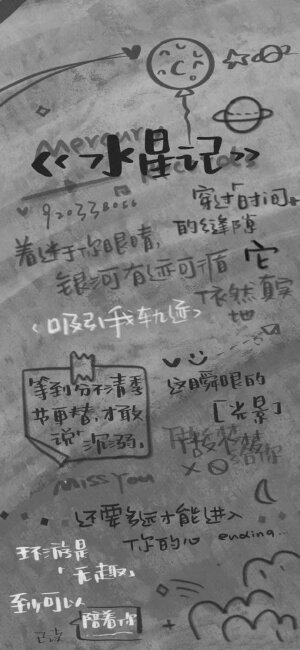 Mercury
Records
《水星记》
920338056
穿过「时间」
的缝隙
着迷于你眼睛,
银河有迹可循
它
依然真实
地
<吸引我轨迹>
等到分不清季
节更替,才敢
说"沉溺。
这瞬眼的
[光景]
给你
Miss You
还要多远才能进入
你的心 ending...
环游是
「无趣,
至少可以
陪着你